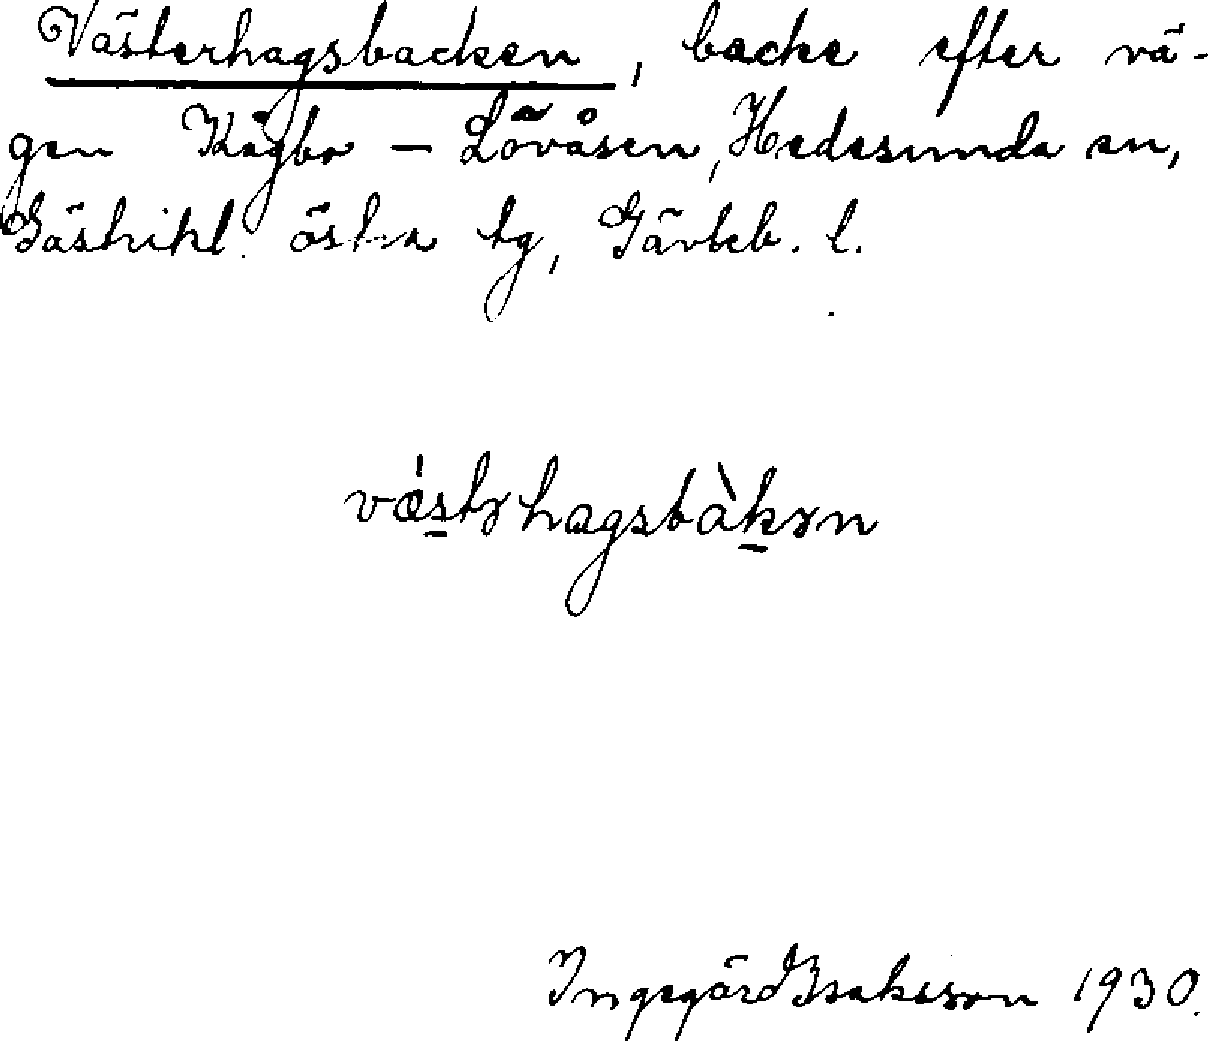 Västerhagsbacken, backe efter vä-
gen Kågbo – Lövåsen, Hedesunda sn,
Gästrikl. östra tg, Gävleb. l.
væ̀stərhagsbàkən
Ingegärd Isaksson 1930.